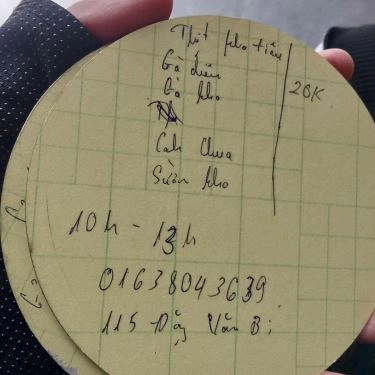 Thịt kho tiêu
Gà chiên
Cá kho
20K.
Canh chua
Sườn kho
10h - 13h
01638043639.
115 Đặng Văn Bi